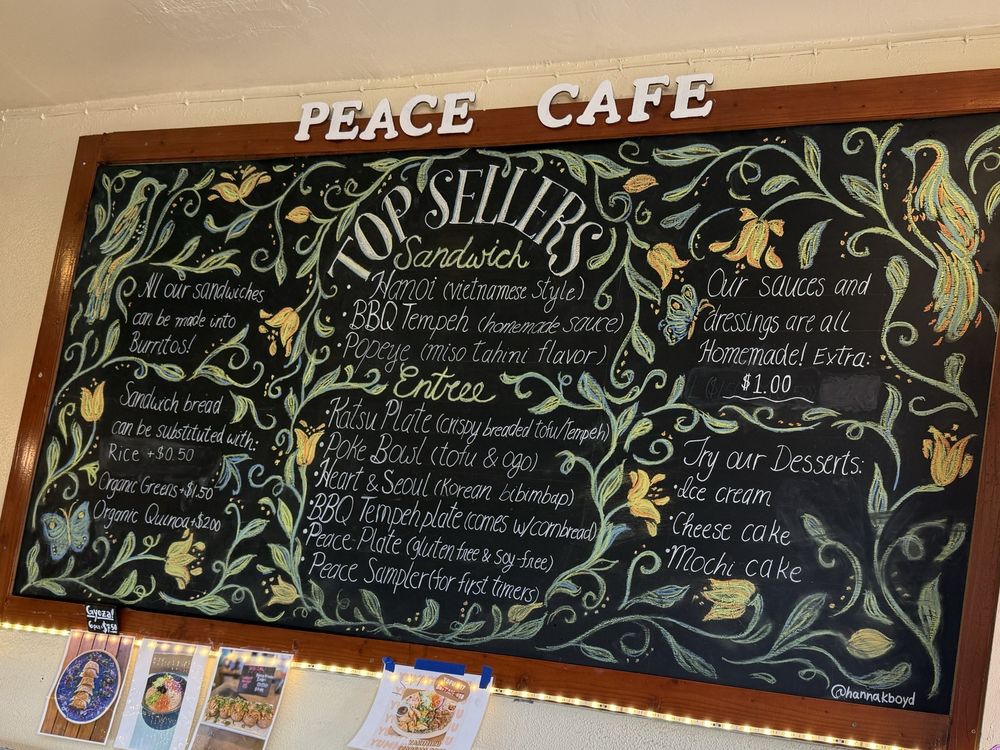 PEACE CAFE
TOP SELLERS
Sandwich
· Hanoi (vietnamese style)
· BBQ Tempeh (homemade sauce)
· Popeye (miso tahini flavor)
Entree
· Katsu Plate (crispy breaded tofu/Tempeh)
· Poke Bowl (tofu & ogo)
· Heart & Seoul (Korean bibimbap)
· BBQ Tempeh plate (comes w/cornbread)
· Peace Plate (gluten free & Soy-free)
· Peace Sampler (for first timers)
All our sandwiches
can be made into
Burritos!
Sandwich bread
can be substituted with:
Rice +$0.50
Organic Greens +$1.50
Organic Quinoa +$2.00
Our sauces and
dressings are all
Homemade! Extra:
$1.00
Try our Desserts:
· Ice cream
· Cheese cake
· Mochi cake
@hannakboyd
Gyoza!